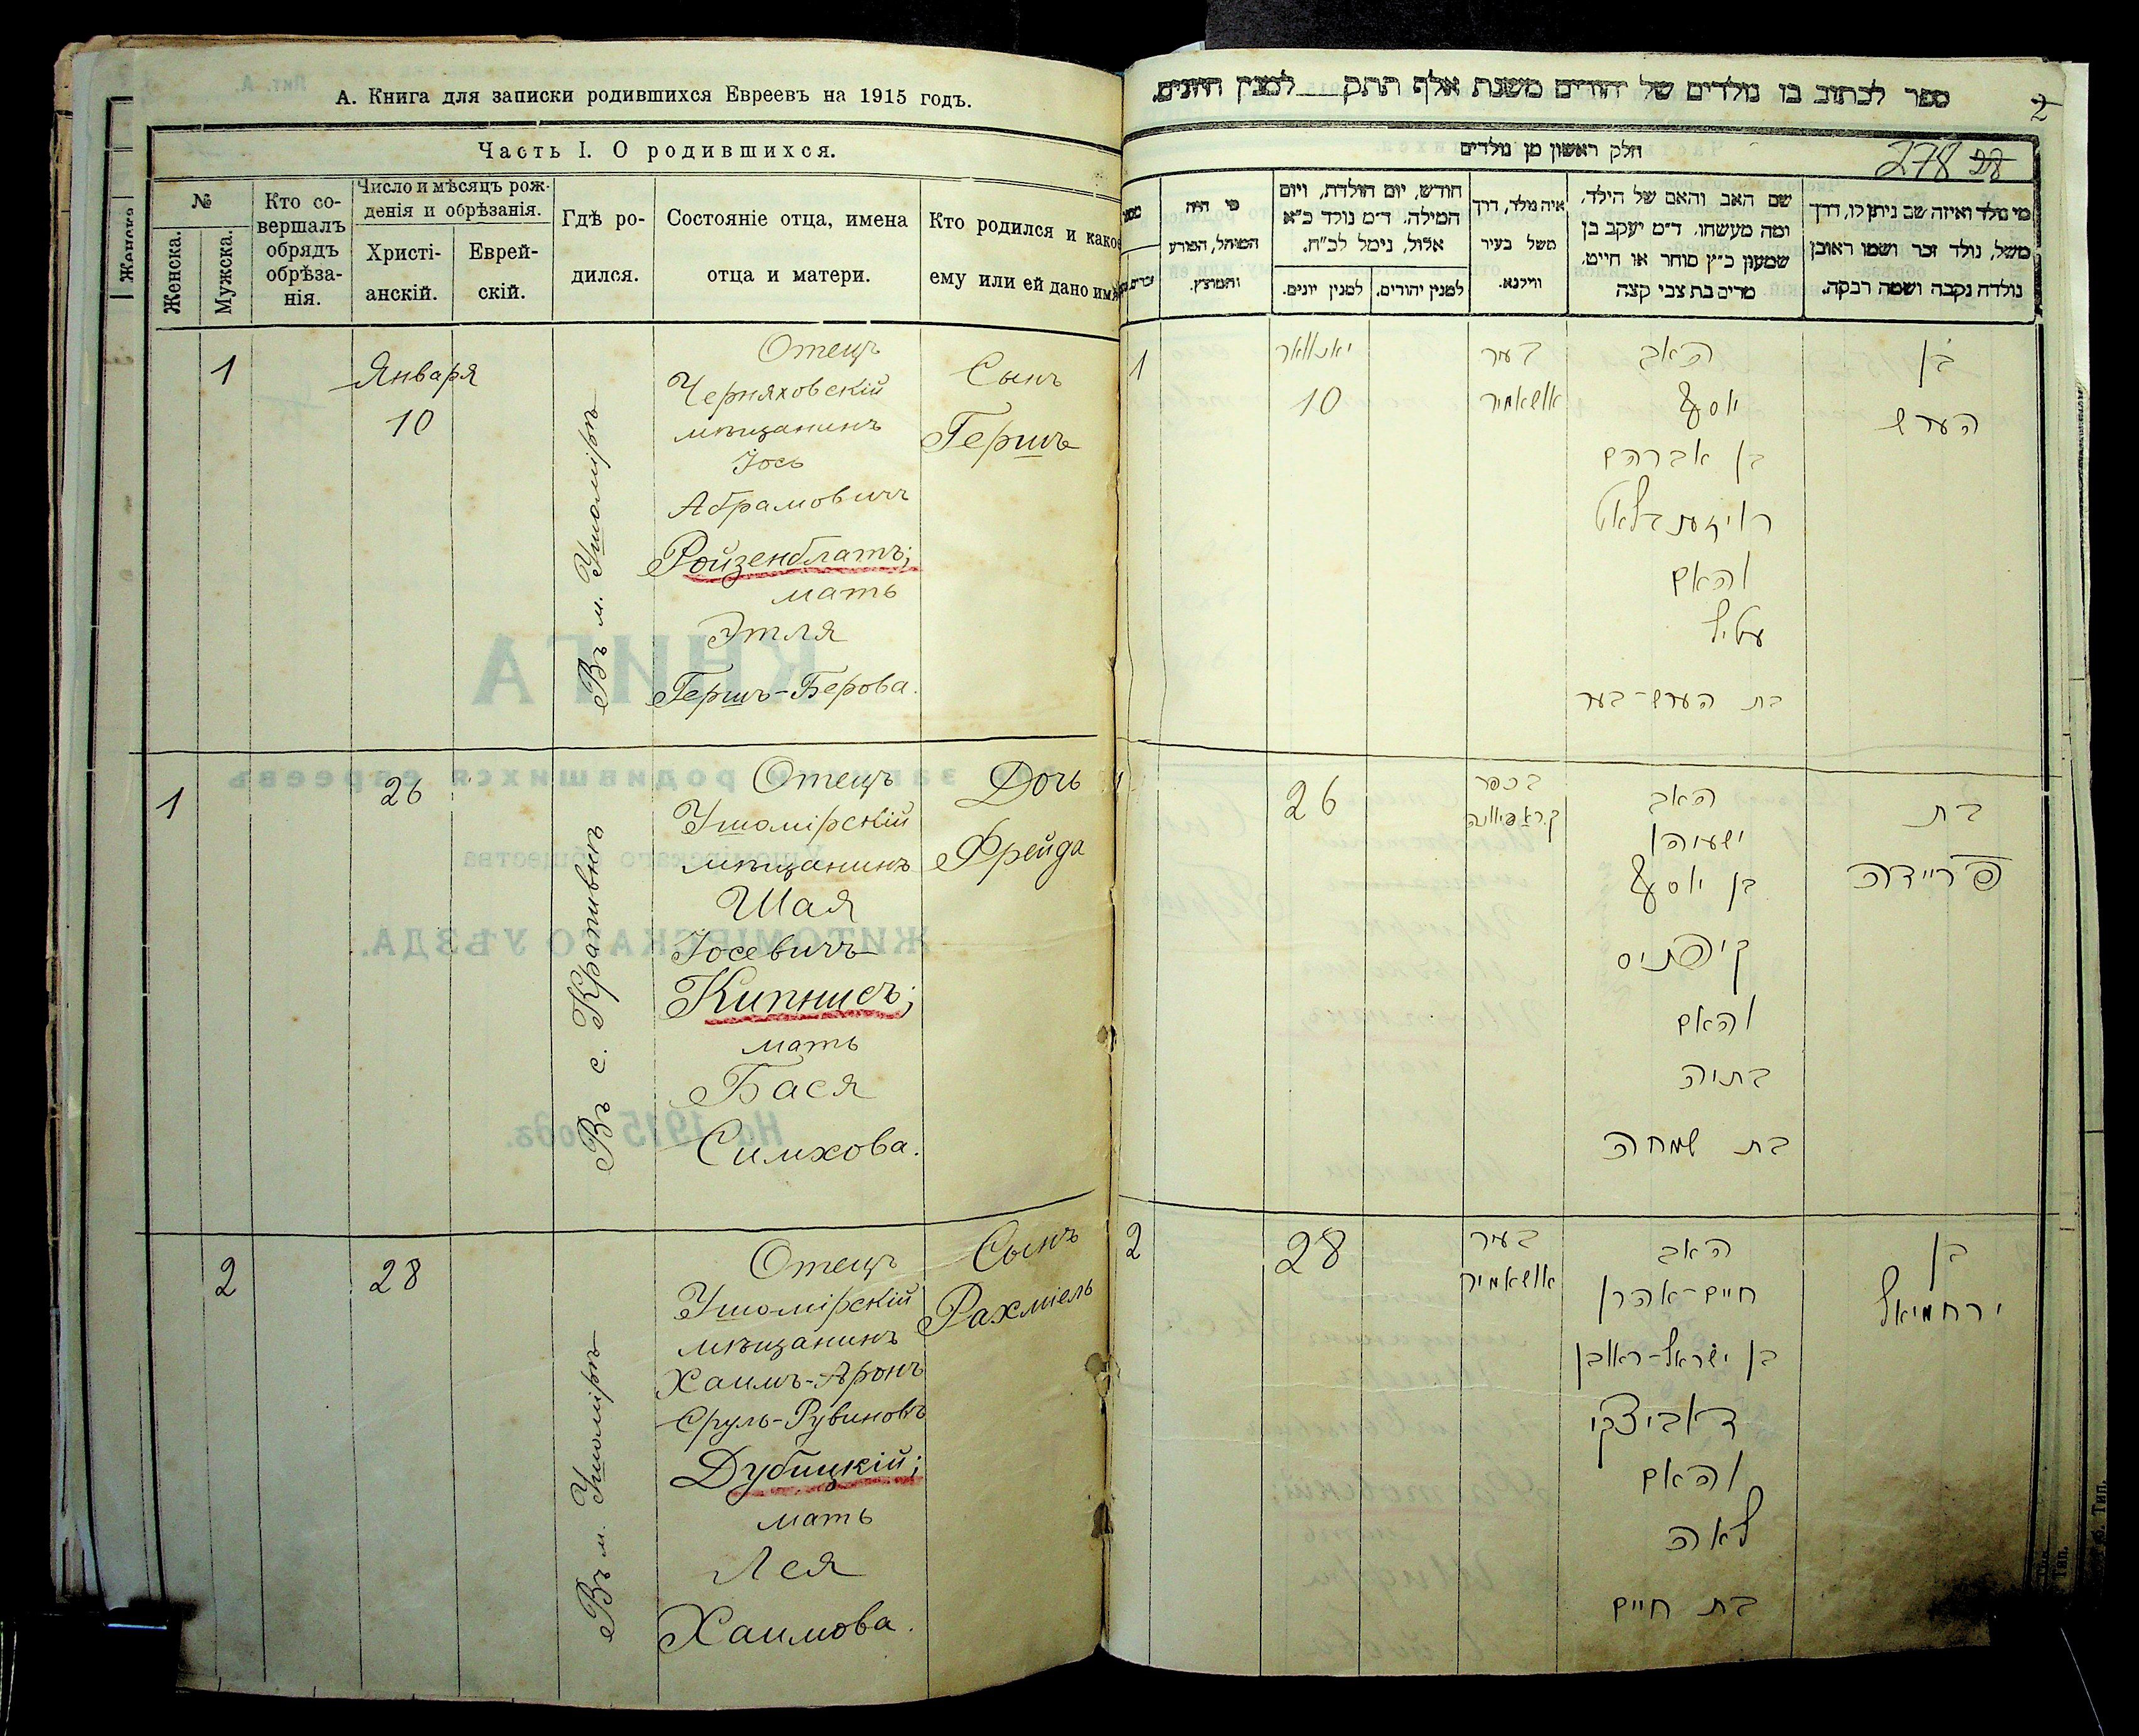 А. Книга для записки родившихся Евреевъ на 1915 годъ.
Часть I. О родившихся.
№
Женска.
Мужска.
Кто со-
вершалъ
обрядъ
обрѣза-
нія.
Число и мѣсяцъ рож-
денія и обрѣзанія.
Христі-
анскій.
Еврей-
скій.
Гдѣ ро-
дился.
Состояніе отца, имена
отца и матери.
Кто родился и какое
ему или ей дано имя
1
Января
10
Въ м. Ушомірѣ
Отецъ
Черняховскій
мѣщанинъ
Іось
Абрамовичъ
Ройзенблатъ;
мать
Этля
Гершъ-Берова.
Сынъ
Гершъ
1
26
Въ с. Крапивнѣ
Отецъ
Ушомірскій
мѣщанинъ
Шая
Іосевичъ
Кипнисъ;
мать
Бася
Симхова.
Дочь
Фрейда
2
28
Въ м. Ушомірѣ
Отецъ
Ушомірскій
мѣщанинъ
Хаимъ-Аронъ
Сруль-Рувиновъ
Дубицкій;
мать
Лея
Хаимова.
Сынъ
Рахміель
ספר לכתוב בו נולדים של יהודים משנת אלף תתק למנין היונים.
2
חלק ראשון מן נולדים
278 28
מי נולד ואיזה שם ניתן לו, דרך
משל, נולד זכר ושמו ראובן
נולדה נקבה ושמה רבקה.
שם האב והאם של הילד,
ומה מעשהו. ד״מ יעקב בן
שמעון כ״ץ סוחר או חייט,
מרים בת צבי קצה
איה נולד, דרך
משל בעיר
ווילנא.
חודש, יום הולדת, ויום
המילה. ד״מ נולד כ״א
אלול, נימל לכ״ח.
למנין יהודים.
למנין יונים.
מי היה
המוהל, הפורע
והמוצץ.
בן
הערש
האב
יוסף
בן אברהם
רויזענבלאט
והאם
עטיל
בת הערש-בער
בעיר
אושאמיר
יאנואר
10
1
בת
פריידה
האב
ישעיהו
בן יוסף
קיפניס
והאם
בתיה
בת שמחה
בכפר
26
בן
ירחמיאל
האב
חיים-אהרן
בן ישראל-ראובן
דאביצקי
והאם
לאה
בת חיים
בעיר
אושאמיר
28
2